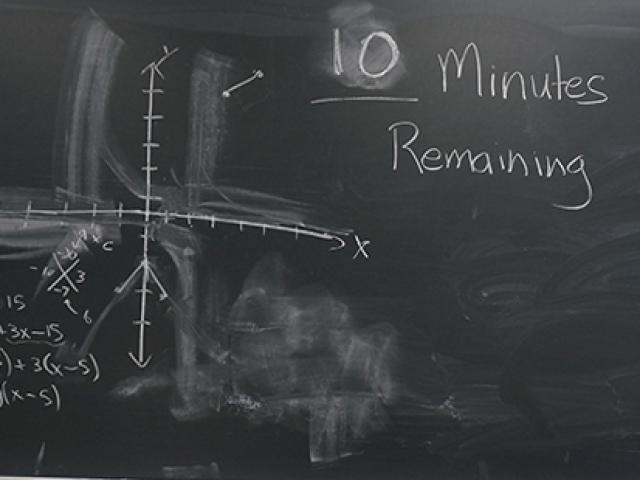 10 Minutes
Remaining
Y
X
3
6
15
+3x-15
)+3(x-5)
)(x-5)